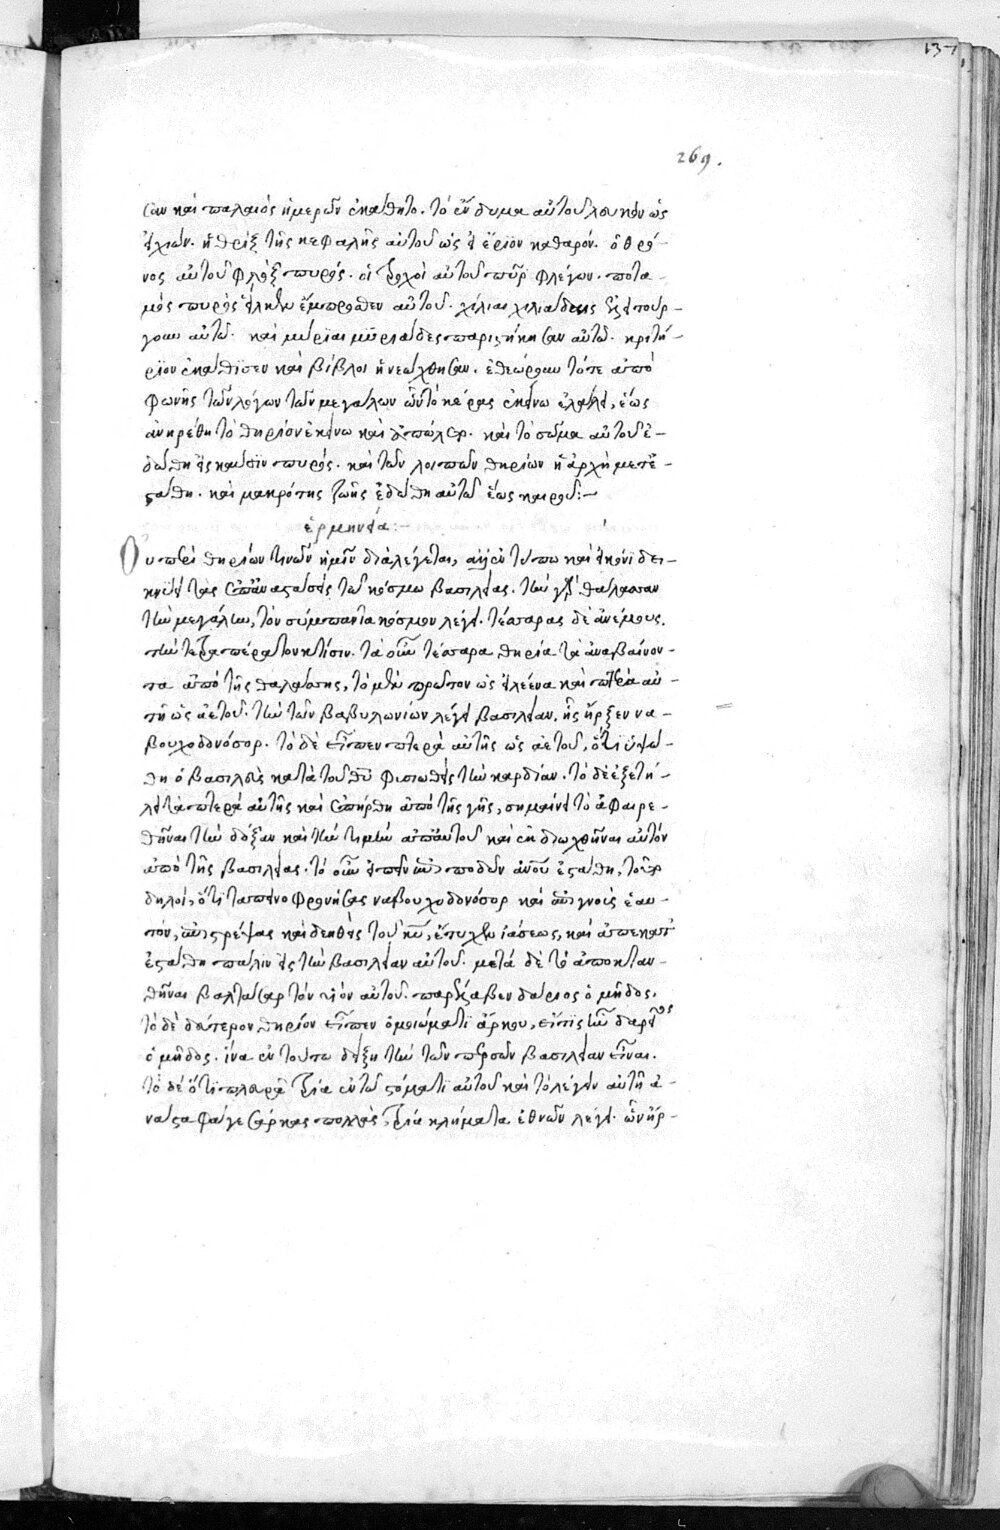 137
269.
σαν καὶ παλαιὸς ἡμερῶν ἐκάθητο. τὸ ἔνδυμα αὐτοῦ λευκὸν ὡς
ἡ χιών. ἡ θρὶξ τῆς κεφαλῆς αὐτοῦ ὡς εἰ ἔριον καθαρόν. ὁ θρό-
νος αὐτοῦ φλὸξ πυρός. οἱ τροχοὶ αὐτοῦ πῦρ φλέγων. ποτα-
μὸς πυρὸς εἷλκεν ἔμπροσθεν αὐτοῦ. χίλιαι χιλιάδες ἐλειτούρ-
γουν αὐτῷ. καὶ μύριαι μυριάδες παριστήκησαν αὐτῷ. κριτή-
ριον ἐκάθισεν καὶ βίβλοι ἠνεῴχθησαν. ἐθεώρουν τότε ἀπὸ
φωνῆς τῶν λόγων τῶν μεγάλων ὧν τὸ κέρας ἐκεῖνο ἐλάλει, ἕως
ἀνῃρέθη τὸ θηρίον ἐκεῖνο καὶ ἀπώλετο. καὶ τὸ σῶμα αὐτοῦ ἐ-
δόθη εἰς καῦσιν πυρός. καὶ τῶν λοιπῶν θηρίων ἡ ἀρχὴ μετε-
στάθη. καὶ μακρότης ζωῆς ἐδόθη αὐτῷ ἕως καιροῦ:-
ἑρμηνεία:-
Οὐ περὶ θηρίων τινῶν ἡμῖν διαλέγεται, ἀλλ' ἐν τύπῳ καὶ εἰκόνι δει-
κνύει τὰς ἐπαναστάσεις τοῦ κόσμου βασιλείας. τὴν γὰρ θάλασσαν
τὴν μεγάλην, τὸν σύμπαντα κόσμον λέγει. τέσσαρας δὲ ἀνέμους.
τὴν τετραπέρατον κτίσιν. τὰ οὖν τέσσαρα θηρία τὰ ἀναβαίνον-
τα ἀπὸ τῆς θαλάσσης, τὸ μὲν πρῶτον ὡς λέαινα καὶ πτερὰ αὐ-
τῇ ὡς ἀετοῦ. τὴν τῶν βαβυλωνίων λέγει βασιλείαν. ἧς ἦρξεν να-
βουχοδονόσορ. τὸ δὲ εἶπεν πτερὰ αὐτῆς ὡς ἀετοῦ, ὅτι ὑψώ-
θη ὁ βασιλεὺς κατὰ τοῦ θῦ φυσιωθεὶς τὴν καρδίαν. τὸ δὲ ἐξετί-
λη τὰ πτερὰ αὐτῆς καὶ ἐπήρθη ἀπὸ τῆς γῆς, σημαίνει τὸ ἀφαιρε-
θῆναι τὴν δόξαν καὶ τὴν τιμὴν ἀπ' αὐτοῦ καὶ ἐκδιωχθῆναι αὐτὸν
ἀπὸ τῆς βασιλείας. τὸ οὖν εἰπεῖν ἐπὶ ποδῶν ἀνοῦ ἐστάθη, τοῦτο
δηλοῖ, ὅτι ταπεινοφρονήσας ναβουχοδονόσορ καὶ ἐπιγνοὺς ἑαυ-
τόν, ἐπιστρέψας καὶ δεηθεὶς τοῦ κῦ, ἔτυχεν ἰάσεως, καὶ ἀπεκατ
εστάθη πάλιν εἰς τὴν βασιλείαν αὐτοῦ. μετὰ δὲ τὸ ἀποκταν-
θῆναι βαλτάσαρ τὸν υἱὸν αὐτοῦ. παρέλαβεν δάριος ὁ μῆδος.
τὸ δὲ δεύτερον θηρίον εἶπεν ὁμοιώματι ἄρκου, εἴ τις ἦν δαρεῖος
ὁ μῆδος. ἵνα ἐν τούτῳ δείξῃ τὴν τῶν περσῶν βασιλείαν εἶναι.
τὸ δὲ ὅτι πλευρὰ τρία ἐν τῷ στόματι αὐτοῦ καὶ τὸ λέγειν αὐτῇ ἀ-
νάστα φάγε σάρκας πολλάς, τρία κλίματα ἐθνῶν λέγει. ὧν ἦρ-